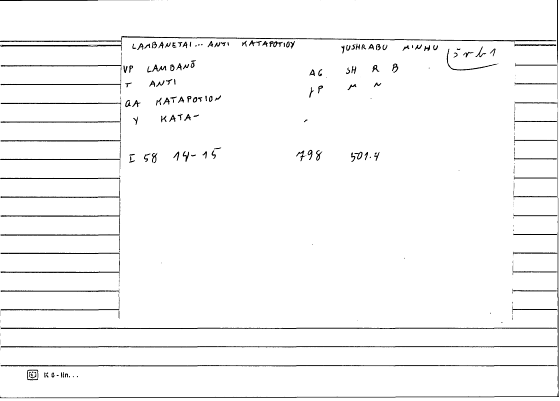 LAMBANETAI... ANTI KATAPOTIOY YUSHRABU MINHU šrb1
VP LAMBANŌ AG SH R B
T ANTI JP M N
GA KATAPOTION
Y KATA-
I 58 14-15 798 501.4